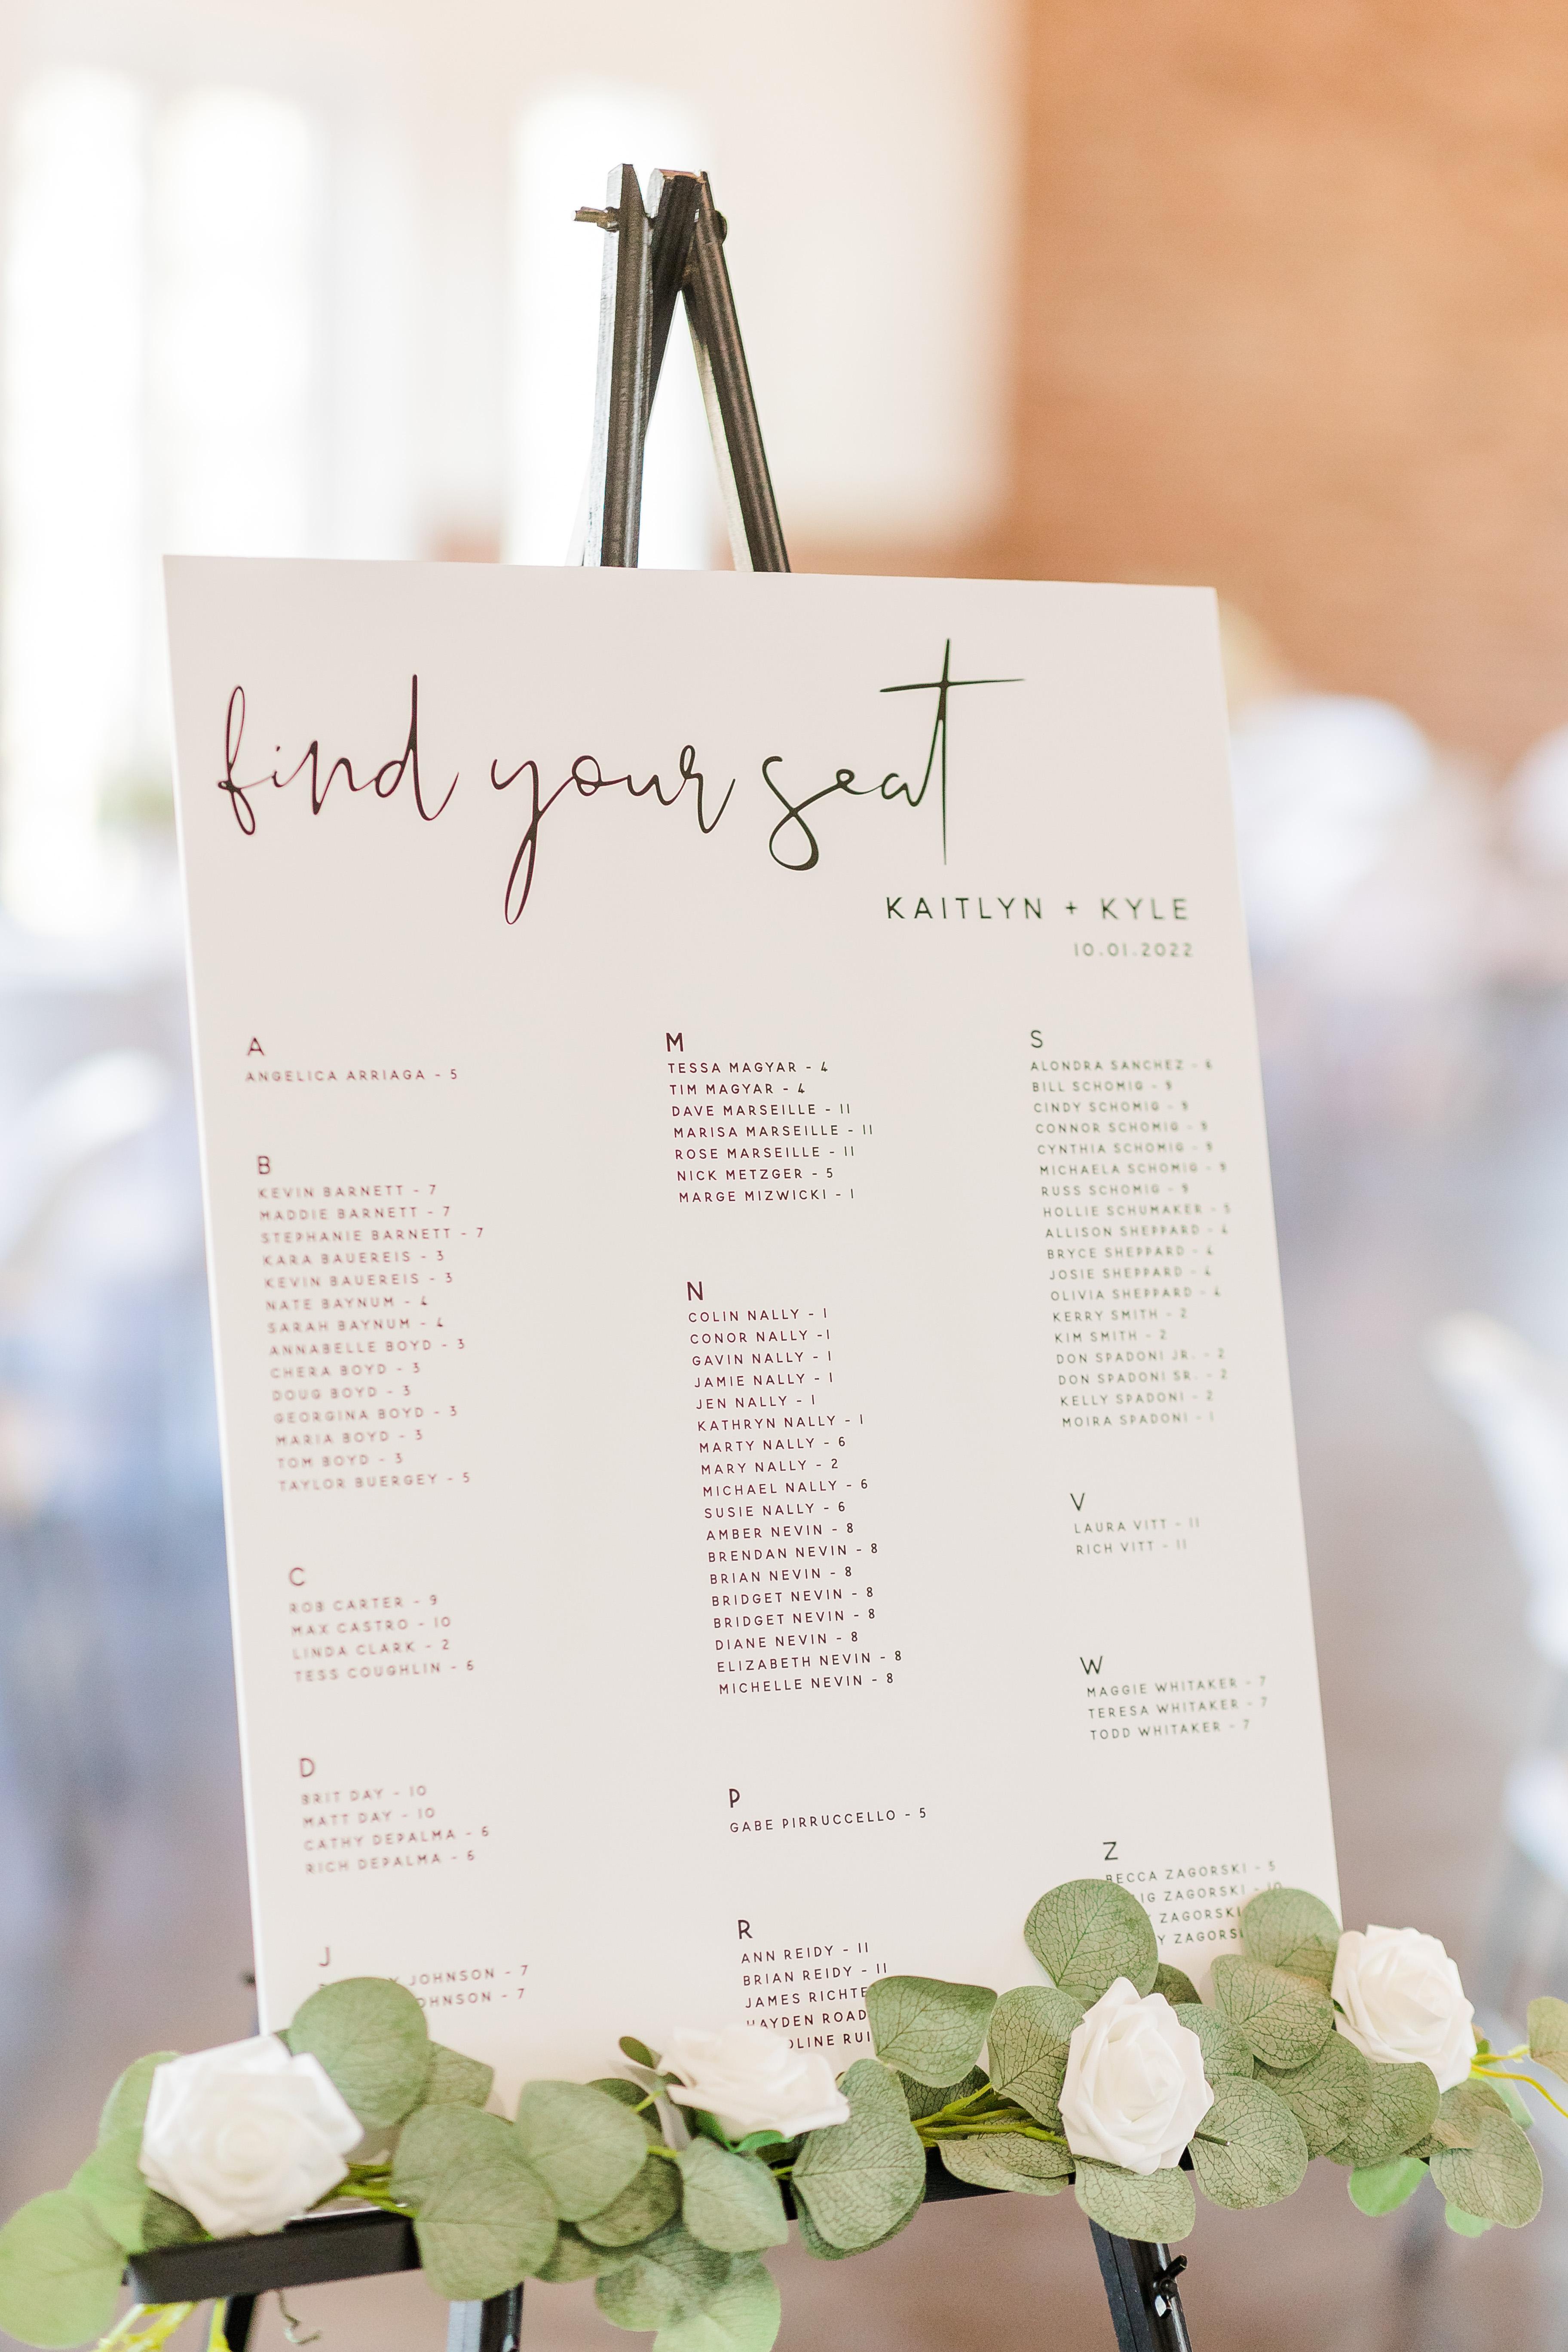 find your seat
KAITLYN + KYLE
10.01.2022
A
ANGELICA ARRIAGA - 5
B
KEVIN BARNETT - 7
MADDIE BARNETT - 7
STEPHANIE BARNETT - 7
KARA BAUEREIS - 3
KEVIN BAUEREIS - 3
NATE BAYNUM - 4
SARAH BAYNUM - 4
ANNABELLE BOYD - 3
CHERA BOYD - 3
DOUG BOYD - 3
GEORGINA BOYD - 3
MARIA BOYD - 3
TOM BOYD - 3
TAYLOR BUERGEY - 5
C
ROB CARTER - 9
MAX CASTRO - 10
LINDA CLARK - 2
TESS COUGHLIN - 6
D
BRIT DAY - 10
MATT DAY - 10
CATHY DEPALMA - 6
RICH DEPALMA - 6
J
JOHNSON - 7
OHNSON - 7
M
TESSA MAGYAR - 4
TIM MAGYAR - 4
DAVE MARSEILLE - 11
MARISA MARSEILLE - 11
ROSE MARSEILLE - 11
NICK METZGER - 5
MARGE MIZWICKI - 1
N
COLIN NALLY - 1
CONOR NALLY -1
GAVIN NALLY - 1
JAMIE NALLY - 1
JEN NALLY - 1
KATHRYN NALLY - 1
MARTY NALLY - 6
MARY NALLY - 2
MICHAEL NALLY - 6
SUSIE NALLY - 6
AMBER NEVIN - 8
BRENDAN NEVIN - 8
BRIAN NEVIN - 8
BRIDGET NEVIN - 8
BRIDGET NEVIN - 8
DIANE NEVIN - 8
ELIZABETH NEVIN - 8
MICHELLE NEVIN - 8
P
GABE PIRRUCCELLO - 5
R
ANN REIDY - 11
BRIAN REIDY - 11
JAMES RICHTE
HAYDEN ROAD
OLINE RUI
S
ALONDRA SANCHEZ - 6
BILL SCHOMIG - 9
CINDY SCHOMIG - 9
CONNOR SCHOMIG - 9
CYNTHIA SCHOMIG - 9
MICHAELA SCHOMIG - 9
RUSS SCHOMIG - 9
HOLLIE SCHUMAKER - 5
ALLISON SHEPPARD - 4
BRYCE SHEPPARD - 4
JOSIE SHEPPARD - 4
OLIVIA SHEPPARD - 4
KERRY SMITH - 2
KIM SMITH - 2
DON SPADONI JR. - 2
DON SPADONI SR. - 2
KELLY SPADONI - 2
MOIRA SPADONI - 1
V
LAURA VITT - 11
RICH VITT - 11
W
MAGGIE WHITAKER - 7
TERESA WHITAKER - 7
TODD WHITAKER - 7
Z
BECCA ZAGORSKI - 5
IG ZAGORSKI - 10
ZAGORSKI
Y ZAGORSK